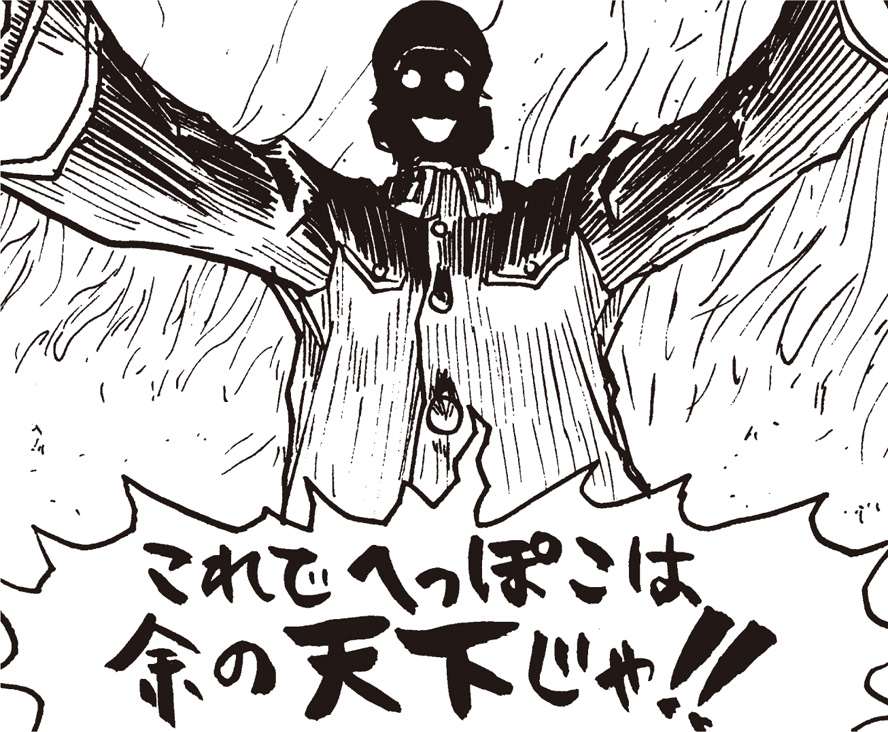 これでへっぽこは
余の天下じゃ!!